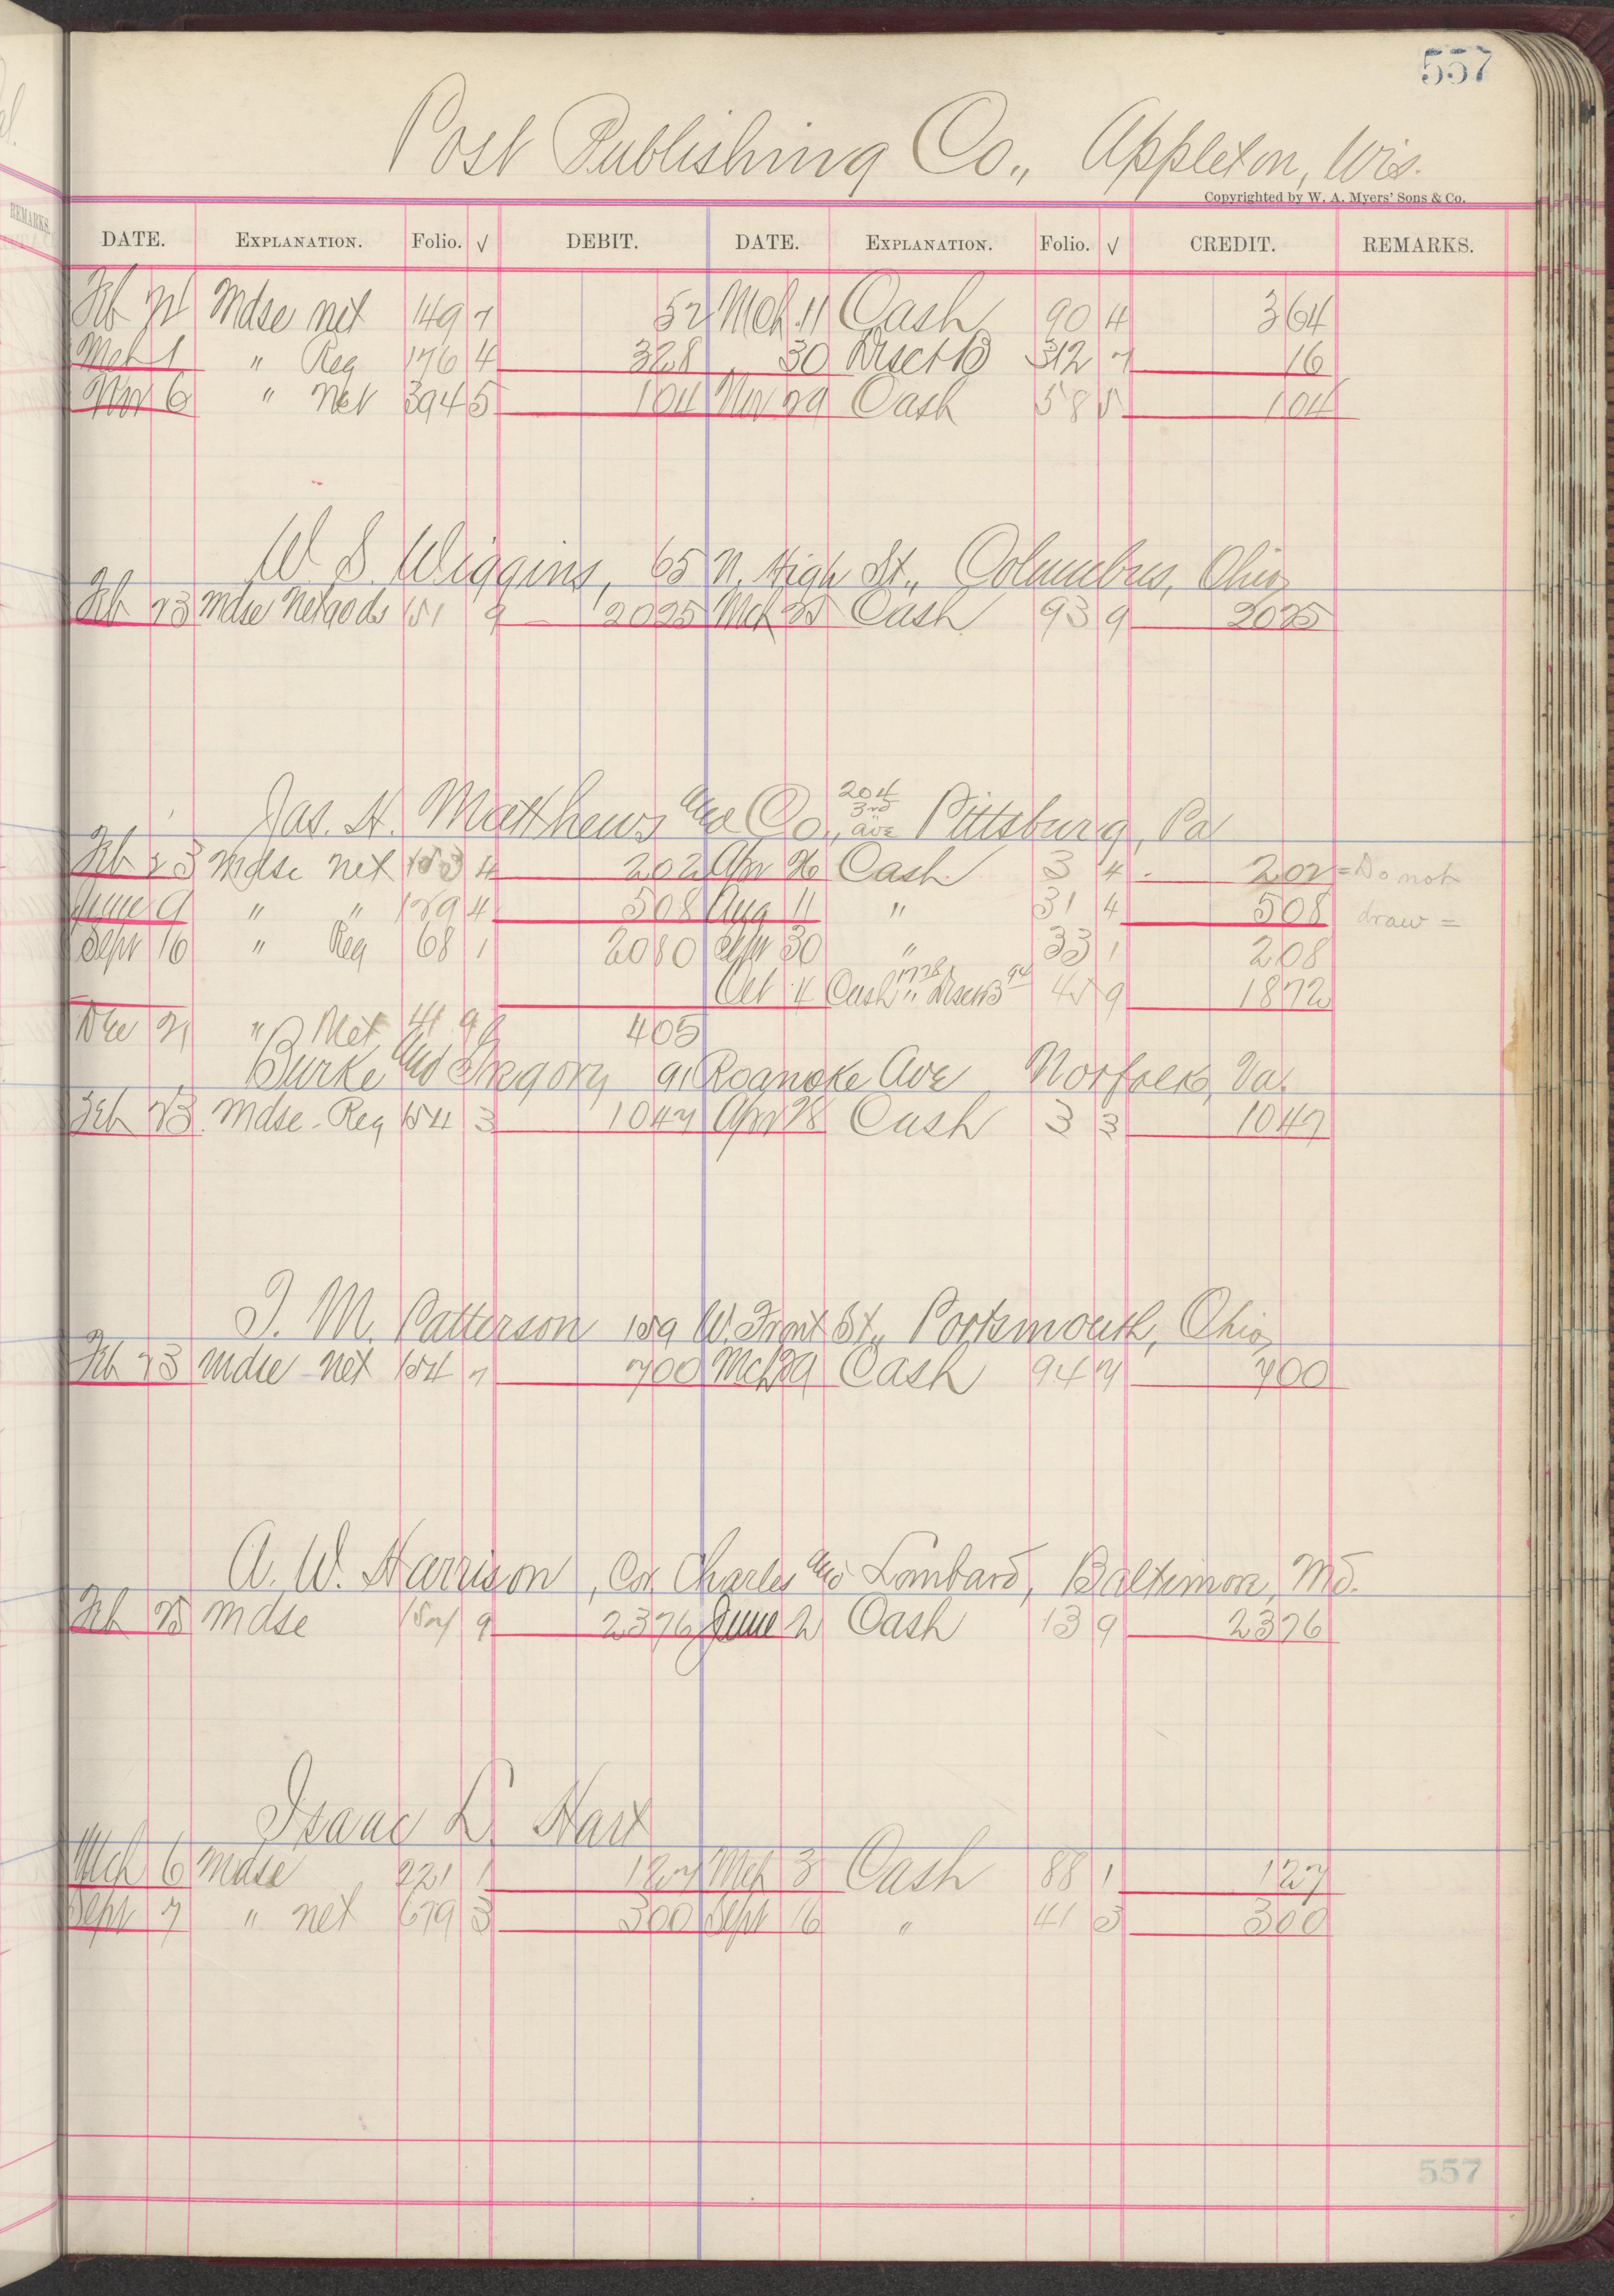 557
Post Publishing Co., Appleton, Wis.
Copyrighted by W. A. Myers' Sons & Co.
DATE. EXPLANATION. Folio. √ DEBIT. DATE. EXPLANATION. Folio. √ CREDIT. REMARKS.
Feb Mdse net 149 7 52 Mch 11 Cash 90 4 364
Mch 1 " Reg 176 4 328 " 30 Disct B 312 7 16
Nov 6 " Net 394 5 104 Nov 29 Cash 58 5 104
W S Wiggins, 65 N. High St., Columbus, Ohio
Feb 23 Mdse Net goods 151 9 2025 Mch 25 Cash 93 9 2025
Jas. H. Matthews and Co., 204 3rd ave Pittsburg, Pa
Feb 23 Mdse net 153 4 202 Apr 26 Cash 3 4 202 = Do not
June 9 " " 129 4 508 Aug 11 " 31 4 508 draw =
Sept 16 " Reg 68 1 2080 Sept 30 " 33 1 208
Oct 4 Cash 1778 " Disct B 94 45 9 1872
Dec 21 " Net 41 9 405
Burke and Gregory 91 Roanoke Ave Norfolk, Va.
Feb 23 Mdse - Reg 154 3 1047 Apr 28 Cash 3 3 1047
T. M. Patterson 159 W. Front St., Portsmouth, Ohio
Feb 23 Mdse net 154 7 700 Mch 29 Cash 94 7 700
A. W. Harrison, Cor Charles and Lombard, Baltimore, Md.
Feb 25 Mdse 157 9 2376 June 2 Cash 13 9 2376
Isaac L. Hart
Mch 6 Mdse 221 1 127 Mch 3 Cash 88 1 127
Sept 7 " net 679 3 300 Sept 16 " 41 3 300
557